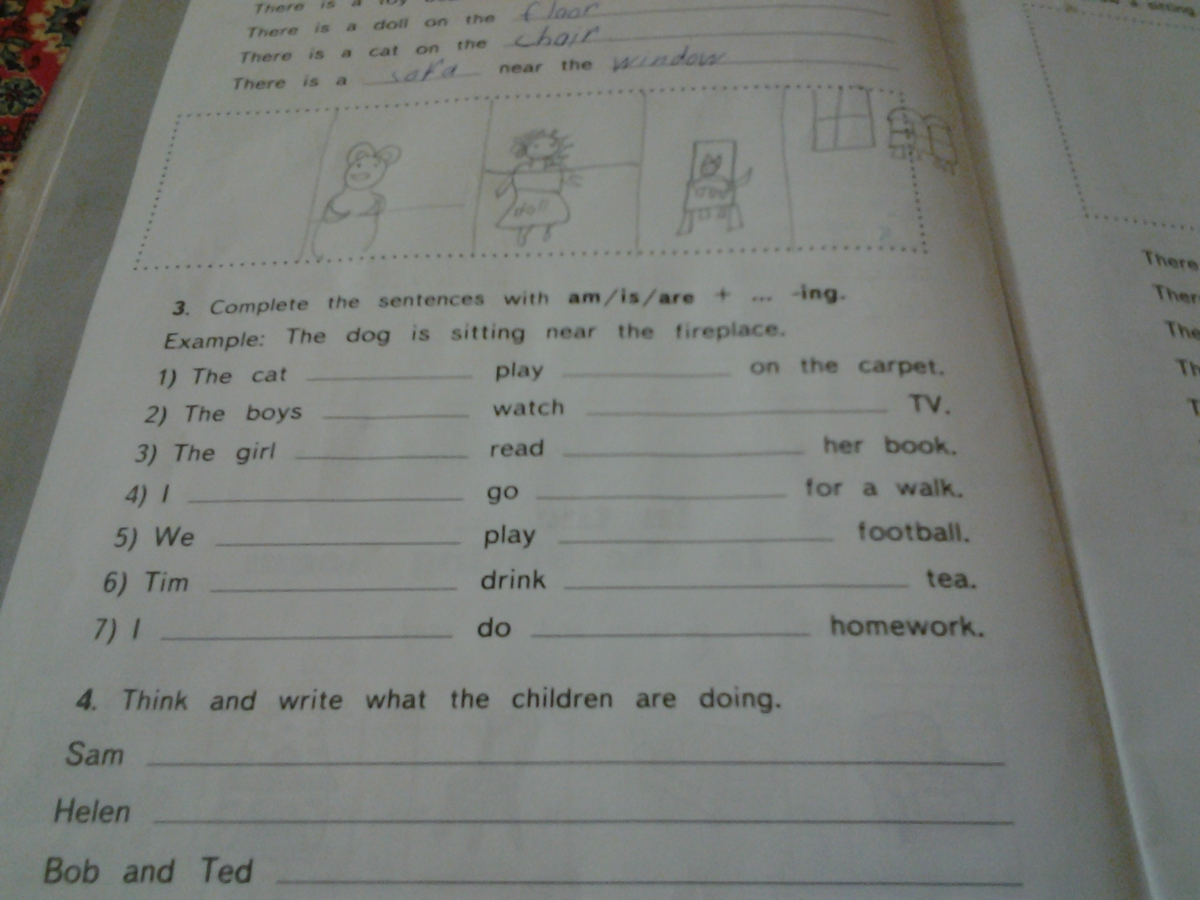 There is a
There is a doll on the floor
There is a cat on the chair
There is a sofa near the window
doll
3. Complete the sentences with am/is/are + ... -ing.
Example: The dog is sitting near the fireplace.
1) The cat ___ play ___ on the carpet.
2) The boys ___ watch ___ TV.
3) The girl ___ read ___ her book.
4) I ___ go ___ for a walk.
5) We ___ play ___ football.
6) Tim ___ drink ___ tea.
7) I ___ do ___ homework.
4. Think and write what the children are doing.
Sam
Helen
Bob and Ted
There